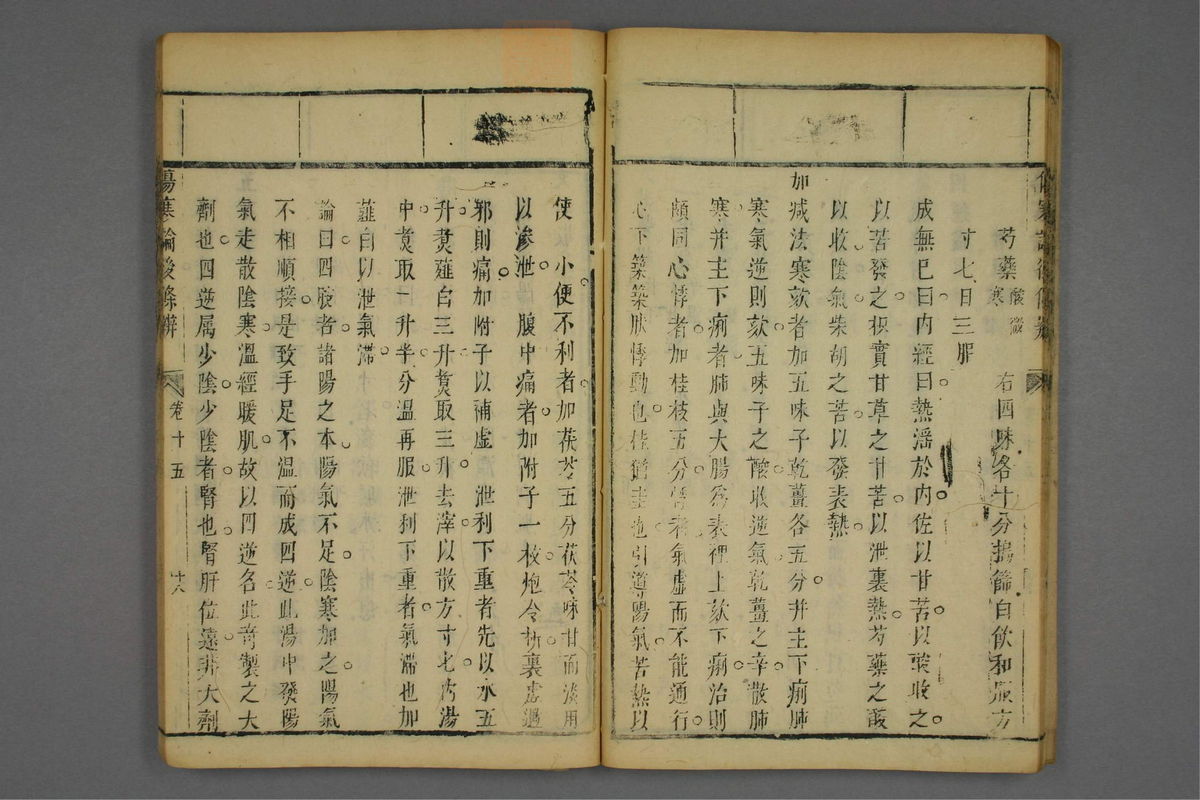 芍藥酸微寒 右四味各十分搗篩白飲和服方
寸七日三服
成無已曰內經曰熱淫於內佐以甘苦以酸收之
以苦發之枳實甘草之甘苦以泄裏熱芍藥之酸
以收陰氣柴胡之苦以發表熱
加减法寒欬者加五味子乾薑各五分并主下痢肺
寒氣逆則欬五味子之酸收逆氣乾薑之辛散肺
寒并主下痢者肺與大腸為表裡上欬下痢治則
頗同心悸者加桂枝五分悸者氣虛而不能通行
心下築築然悸動也桂猶圭也引導陽氣若熱以
使小便不利者加茯苓五分茯苓味甘而淡用
以滲泄腹中痛者加附子一枚炮令拆裏虛遇
邪則痛加附子以補虛泄利下重者先以水五
升煑薤白三升煑取三升去滓以散方寸七內湯
中煑取一升半分溫再服泄利下重者氣滯也加
薤白以泄氣滯
論曰四肢者諸陽之本陽氣不足陰寒加之陽氣
不相順接是致手足不溫而成四逆此湯中發陽
氣走散陰寒溫經暖肌故以四逆名此奇製之大
劑也四逆属少陰少陰者腎也腎肝位遠非大劑
傷寒論後條辨 卷十五 十六